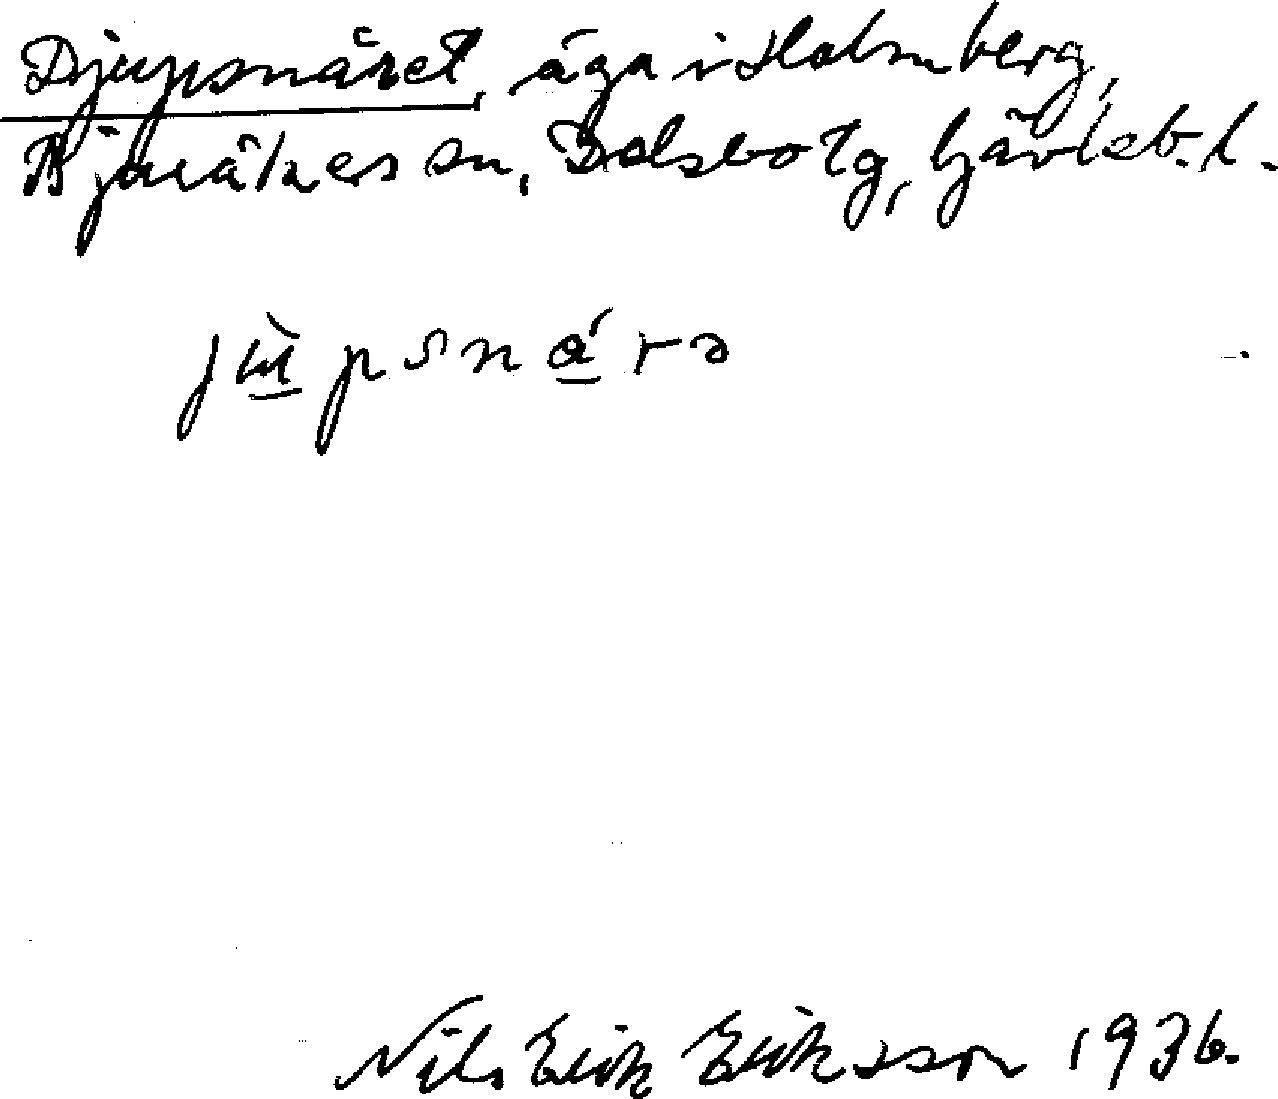 Djupsnäret, äga i Holmberg,
Bjuråkers sn, Bålsborg, Gävleb. l.
jʉ̀psnárə
Nils Erik Eriksson 1936.